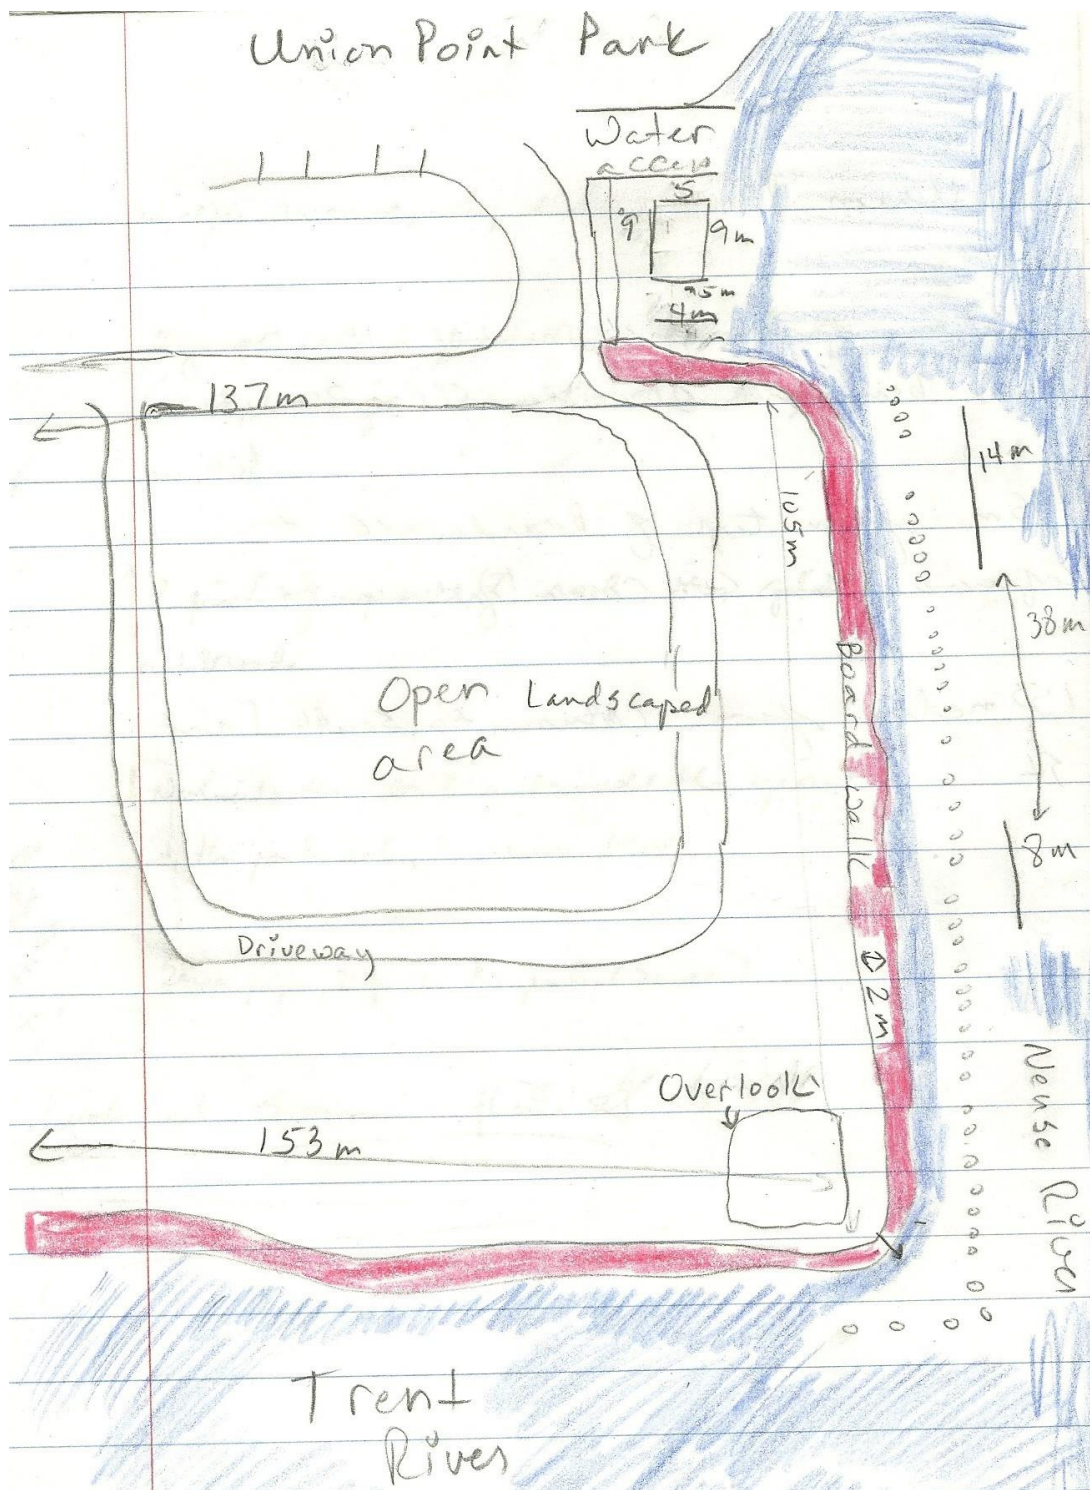 Union Point Park
Water
access
5
9
9m
5m
4m
137m
14m
105m
38m
Boardwalk
Open Landscaped
area
8m
Driveway
2m
Overlook
153m
Neuse River
Trent
River